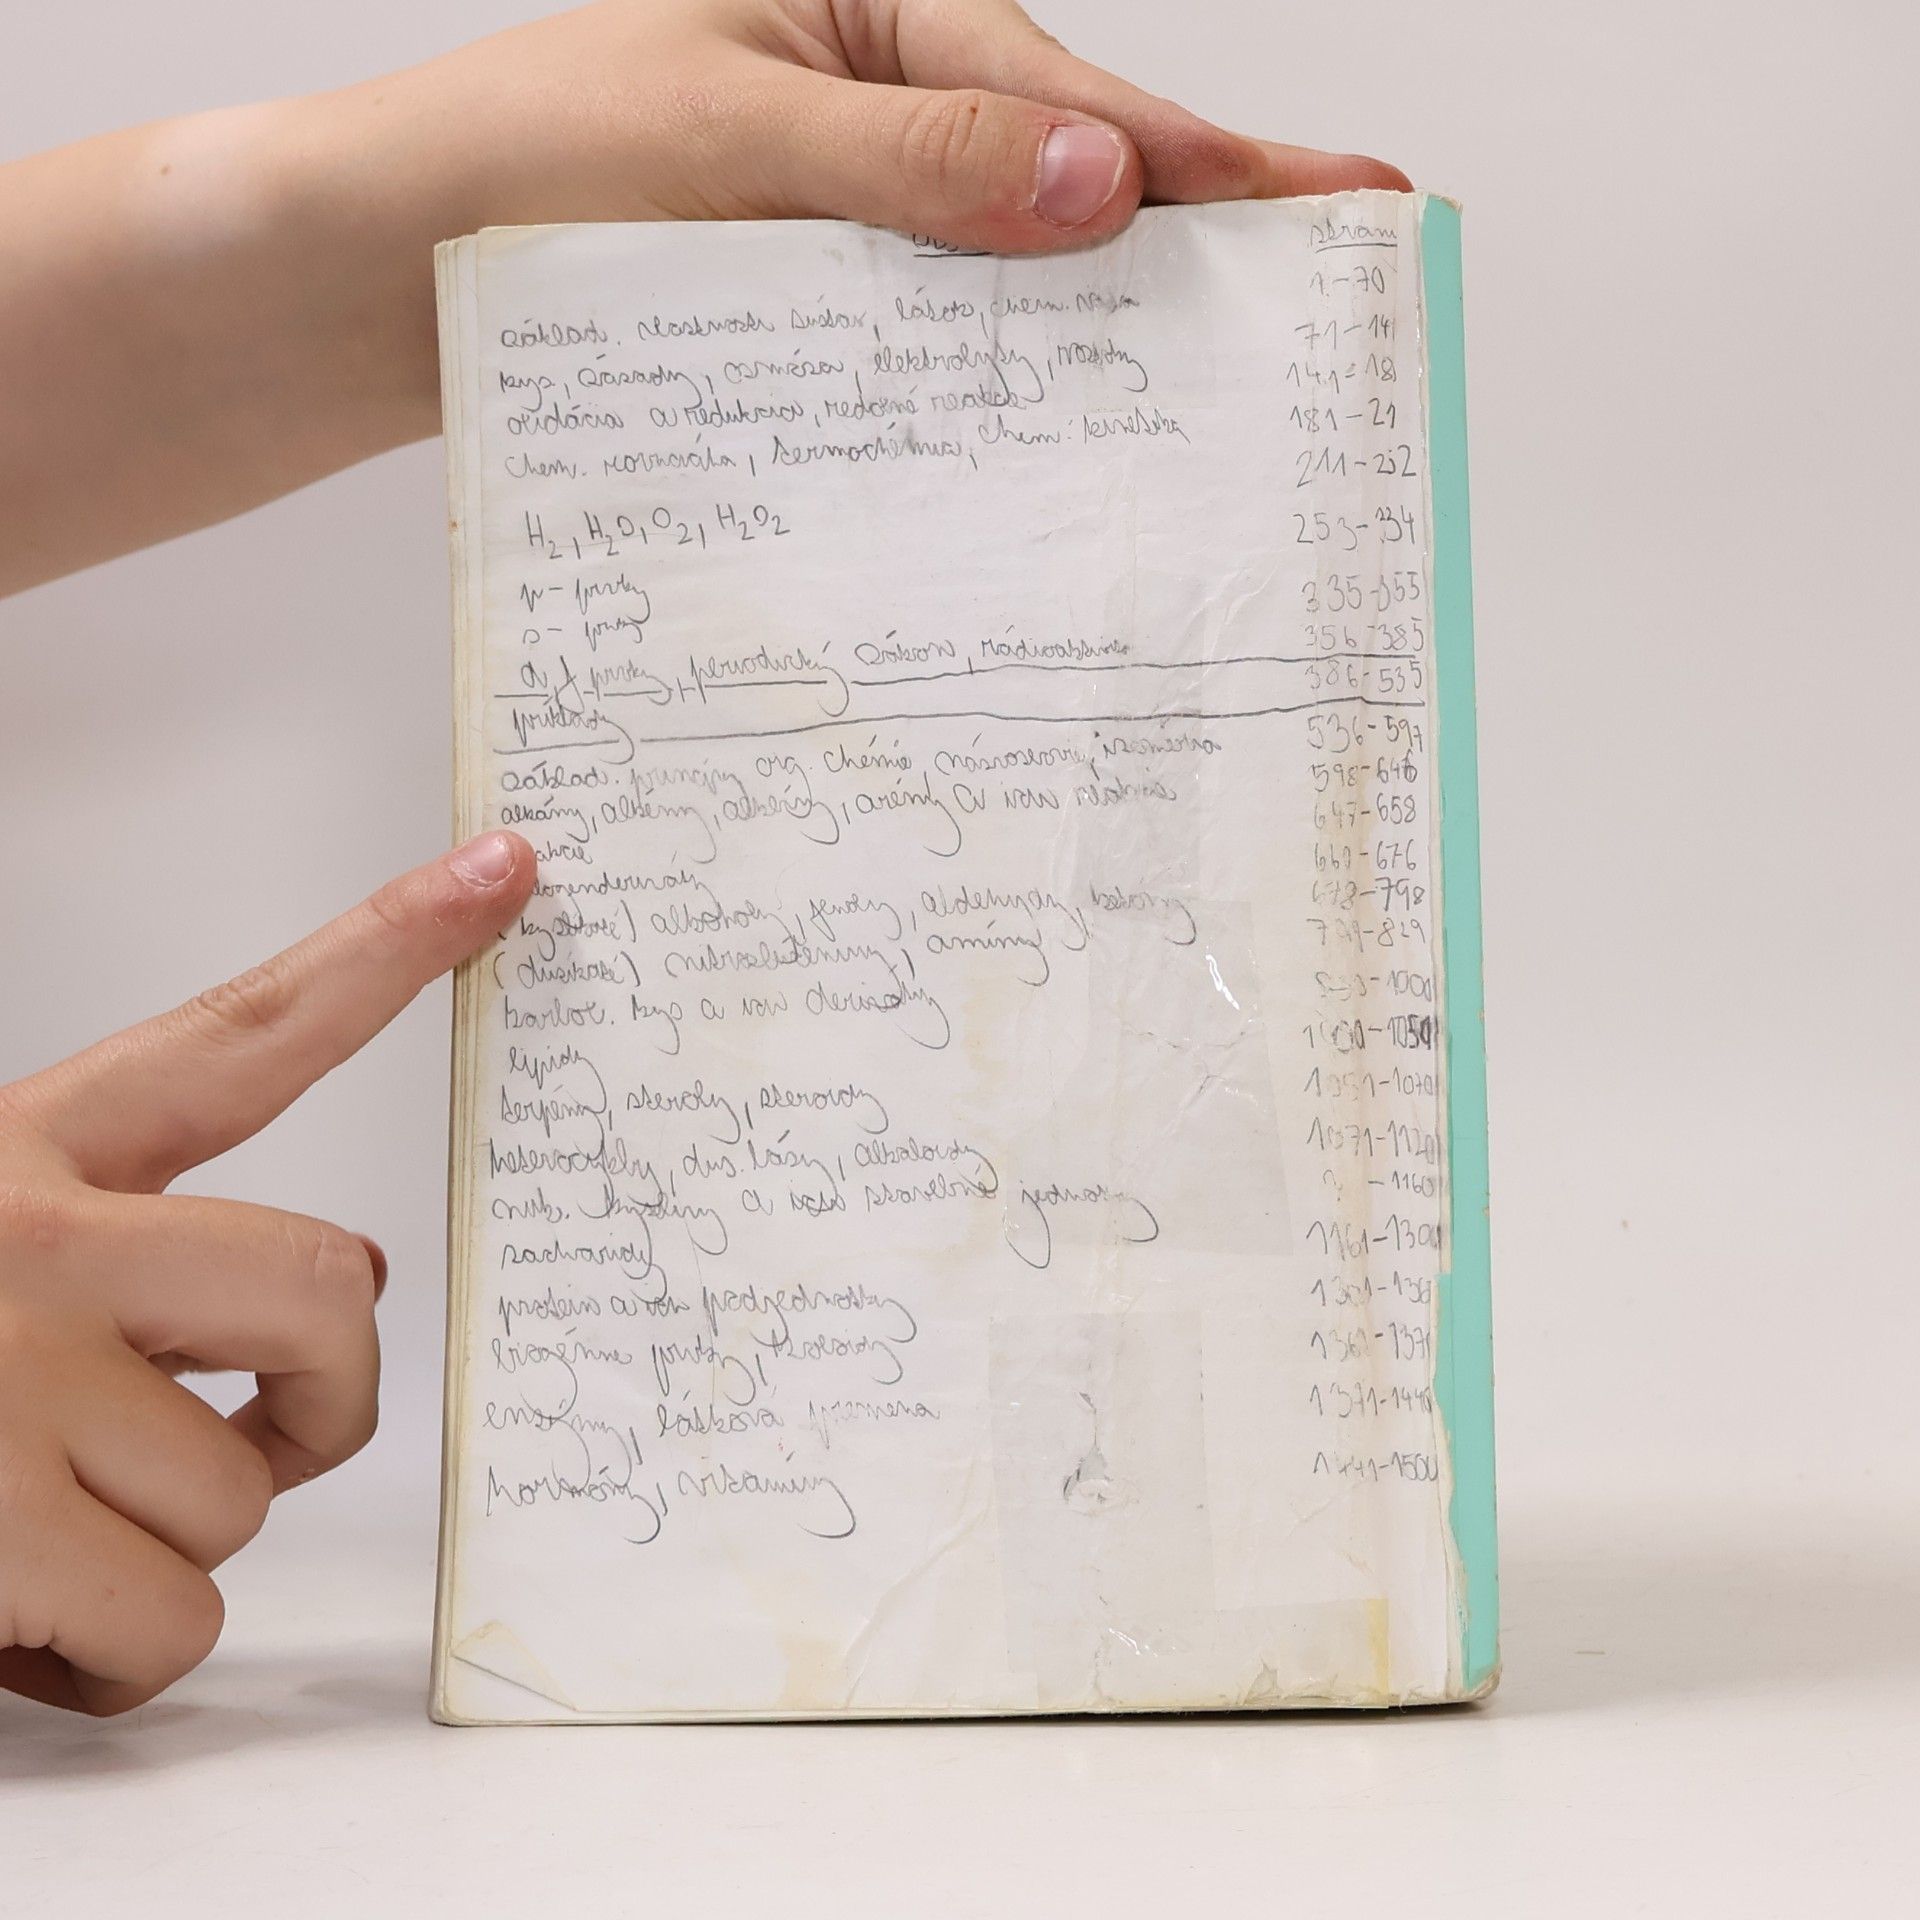 strán
základ. vlastnosti sústav, látok, chem. väzba 1-70
kys, zásady, osmóza, elektrolyty, roztoky 71-14
oxidácia a redukcia, redoxné reakcie 141-18
chem. rovnováha, termochémia, chem. kinetika 181-21
211-252
H2, H2O, O2, H2O2 253-334
p- prvky 335-355
s- prvky 356-385
d, f- prvky, periodický zákon, rádioaktivita 386-535
príklady 536-597
základ. princípy org. chémie, názvoslovie, izoméria 598-646
alkány, alkény, alkíny, arény a ich reakcie 647-658
akcie 660-676
logenderiváty 678-798
(kyslíkaté) alkoholy, fenoly, aldehydy, ketóny 799-829
(dusíkaté) nitrozlúčeniny, amíny
karbox. kys a ich deriváty
lipidy
terpény, steroly, steroidy
heterocykly, dus. bázy, alkaloidy 1071-1120
nuk. kyseliny a ich stavebné jednotky ? -1160
sacharidy 1161-1300
proteín a ich podjednotky
biogénne prvky, koloidy
enzýmy, látková premena 1371-1440
hormóny, vitamíny 1441-1500